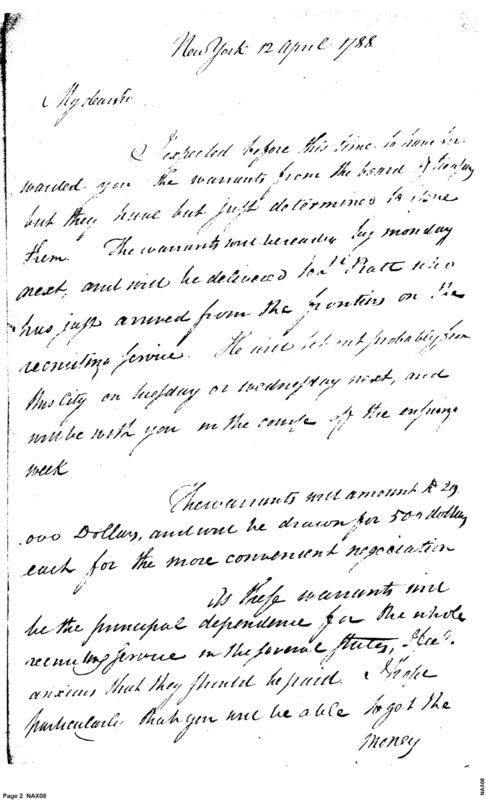 New York 12 April 1788.
My dear sir
I expected before this time to have for
warded you the warrants from the board of treasury
but they have but just determined to issue
them. The warrants will be ready by monday
next, and will be delivered to Lt Pratt who
has just arrived from the frontiers on the
recruiting service. He will set out probably from
this City on tuesday or wednesday next, and
will be with you in the course of the ensuing
week
The warrants will amount to 20
.000 Dollars, and will be drawn for 500 dollars
each for the more convenient negociation
As these warrants will
be the principal dependence for the whole
recruiting service in the several states, I feel
anxious that they should be paid. I hope
particularly that you will be able to get the
money
Page 2 NAX08
NAX08